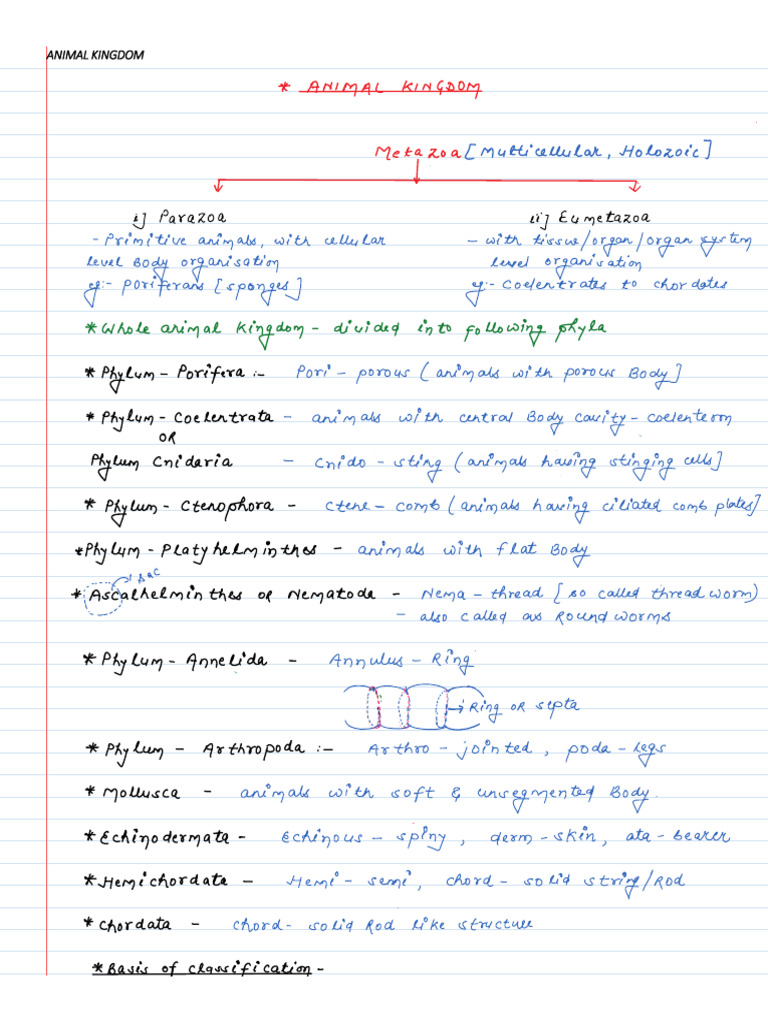 ANIMAL KINGDOM
* ANIMAL KINGDOM
Metazoa [Multicellular, Holozoic]
i] Parazoa
ii] Eumetazoa
- Primitive animals, with cellular
level Body organisation
eg:- Poriferans [sponges]
- with tissue/organ/organ system
level organisation
eg:- Coelentrates to chordates
* Whole animal Kingdom - divided into following phyla
* Phylum - Porifera :- Pori - porous (animals with porous Body]
* Phylum - Coelentrata - animals with central Body cavity - coelenteron
OR
Phylum Cnidaria - Cnido - sting (animals having stinging cells]
* Phylum - Ctenophora - Ctene - comb (animals having ciliated comb plates]
* Phylum - Platyhelminthes - animals with flat Body
* Ascalhelminthes or Nematoda - Nema - thread [so called thread worm)
- also called as Round worms
* Phylum - Annelida - Annulus - Ring
Ring or septa
* Phylum - Arthropoda :- Arthro - jointed, poda - legs
* Mollusca - animals with soft & unsegmented Body.
* Echinodermata - Echinous - spiny, derm - skin, ata - bearer
* Hemichordata - Hemi - semi, chord - solid string/Rod
* Chordata - chord - solid Rod like structure
* Basis of classification -